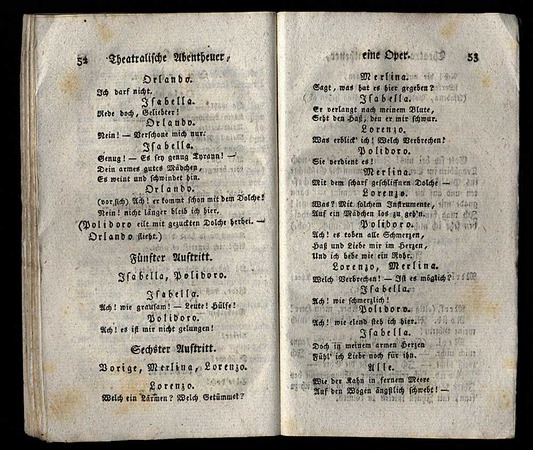 52 Theatralische Abentheuer,
Orlando.
Ich darf nicht.
Isabella.
Rede doch, Geliebter!
Orlando.
Nein! — Verschone mich nur.
Isabella.
Genug! — Es sey genug Tyrann! —
Dein armes gutes Mädchen,
Es weint und schwindet hin.
Orlando.
(vor sich) Ach! er kommt schon mit dem Dolche!
Nein! nicht länger bleib ich hier.
(Polidoro eilt mit gezuckten Dolche herbei. —
Orlando flieht.)
Fünfter Auftritt.
Isabella, Polidoro.
Isabella.
Ach! wie grausam! — Leute! Hülfe!
Polidoro.
Ach! es ist mir nicht gelungen!
Sechster Auftritt.
Vorige, Merlina, Lorenzo.
Lorenzo.
Welch ein Lärmen? Welch Getümmel?
eine Oper. 53
Merlina.
Sagt, was hat es hier gegeben?
Isabella.
Er verlangt nach meinem Blute,
Seht den Haß, den er mir schwur.
Lorenzo.
Was erblick' ich! Welch Verbrechen?
Polidoro.
Sie verdient es!
Merlina.
Mit dem scharf geschliffnen Dolche —
Lorenzo.
Was? Mit solchem Instrumente,
Auf ein Mädchen los zu geh'n.
Polidoro.
Ach! es toben alle Schmerzen,
Haß und Liebe mir im Herzen,
Und ich bebe wie ein Rohr.
Lorenzo, Merlina.
Welch Verbrechen! — Ist es möglich?
Isabella.
Ach! wie schmerzlich!
Polidoro.
Ach! wie elend steh ich hier.
Isabella.
Doch in meinem armen Herzen
Fühl' ich Liebe noch für ihn.
Alle.
Wie der Kahn in fernem Meere
Auf den Wogen ängstlich schwebt! —